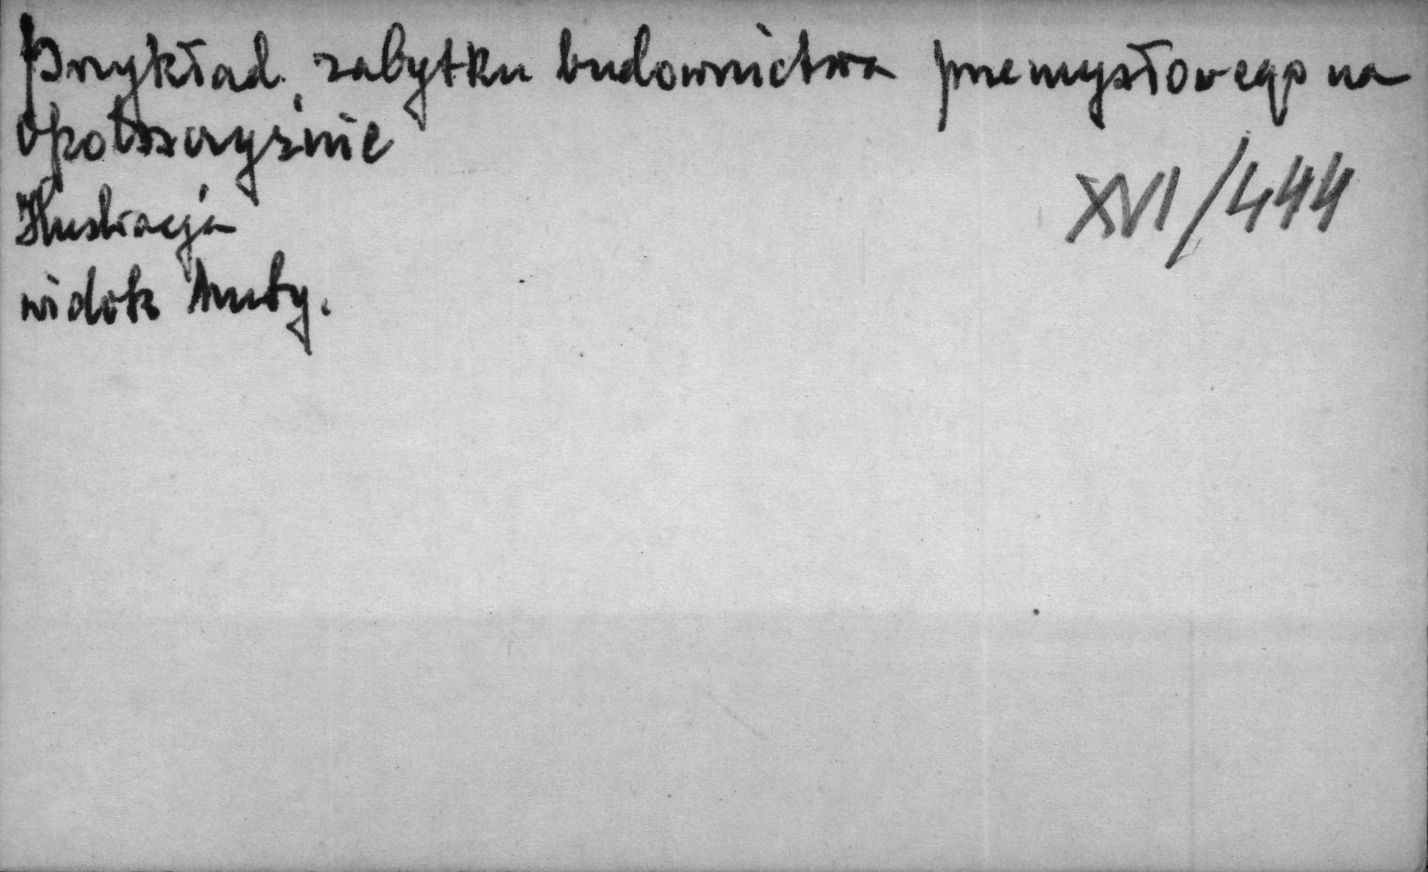 Przykład zabytku budownictwa przemysłowego na
Opolszczyźnie
XVI/444
Ilustracja
widok huty.